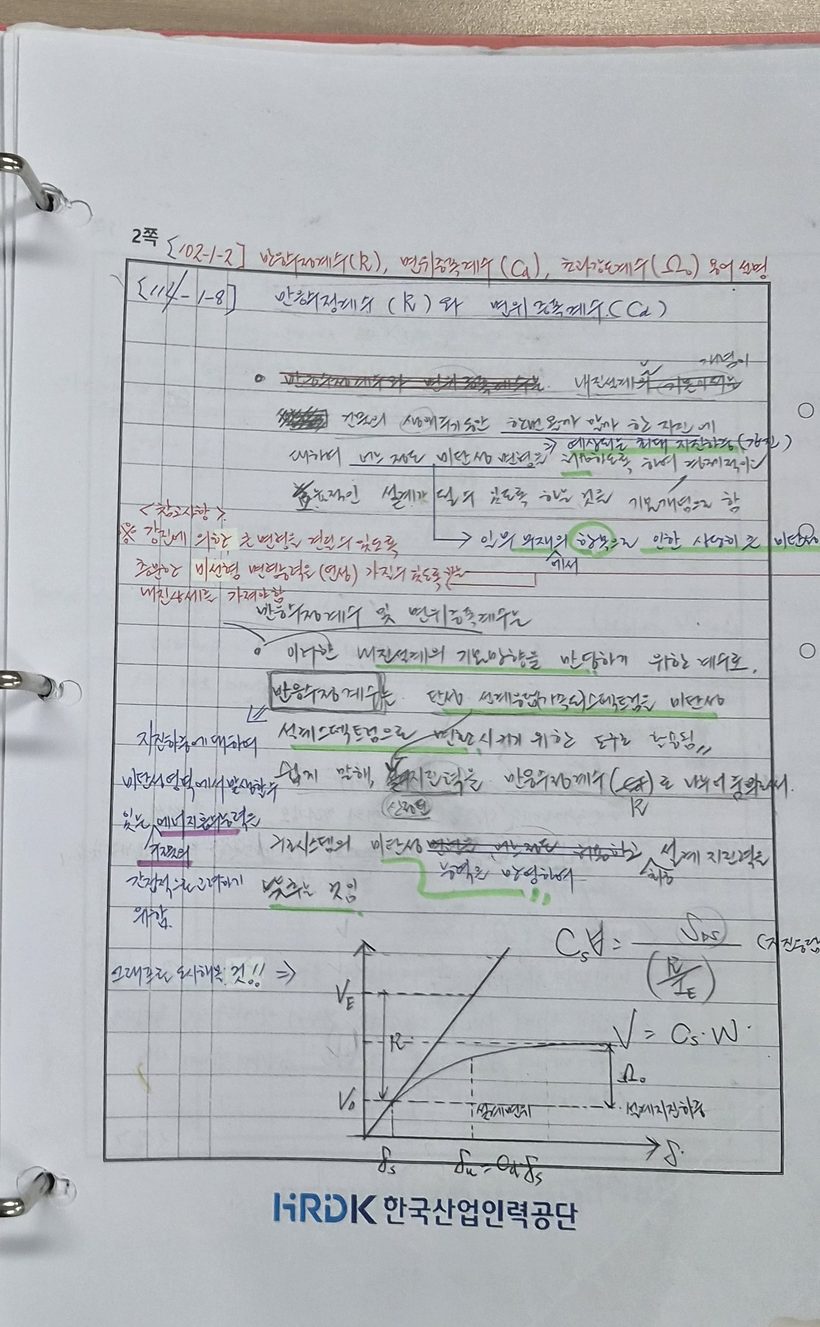 2쪽 [102-1-2] 반응수정계수(R), 변위증폭계수(Cd), 초과강도계수(Ω₀) 용어 설명
[114-1-8] 반응수정계수 (R)와 변위증폭계수(Cd)
개념이
내진설계의
건물의 생애주기동안 한번 올까 말까 한 지진에
→ 예상되는 최대 지진하중(강진)
대하여 어느정도 비탄성 변형을 허용하도록 하여 경제적이고
설계가 될 수 있도록 하는 것을 기본개념으로 함
<참고사항>
※ 강진에 의한 큰 변형을 견딜 수 있도록
→ 일부 부재의 항복으로 인한 상당히 큰 비탄성
에서
충분한 비선형 변형능력을(연성) 가질 수 있도록
내진상세를 가져야함
반응수정계수 및 변위증폭계수는
이러한 내진설계의 기본방향을 반영하기 위한 계수로,
반응수정계수는 탄성 설계응답가속도스펙트럼을 비탄성
설계스펙트럼으로 변환시키기 위한 도구로 활용됨
지진하중에 대하여
비탄성영역에서 발생할 수
있는 에너지흡수능력을
구조의
간접적으로 고려하기
위함.
쉽게 말해, 지진력을 반응수정계수( )로 나누어 줌으로서.
R
구조시스템의 비탄성 변형을 어느정도 허용하고 설계 지진력을
능력을 반영하여
낮추는 것임
Cs = SDS
(R/IE)
그래프로 도시해본 것!! ⇒
VE
R
V = Cs·W.
Ω₀
V₀
설계변위
설계지진하중
δs
δu = Cd·δs
δ.
HRDK 한국산업인력공단